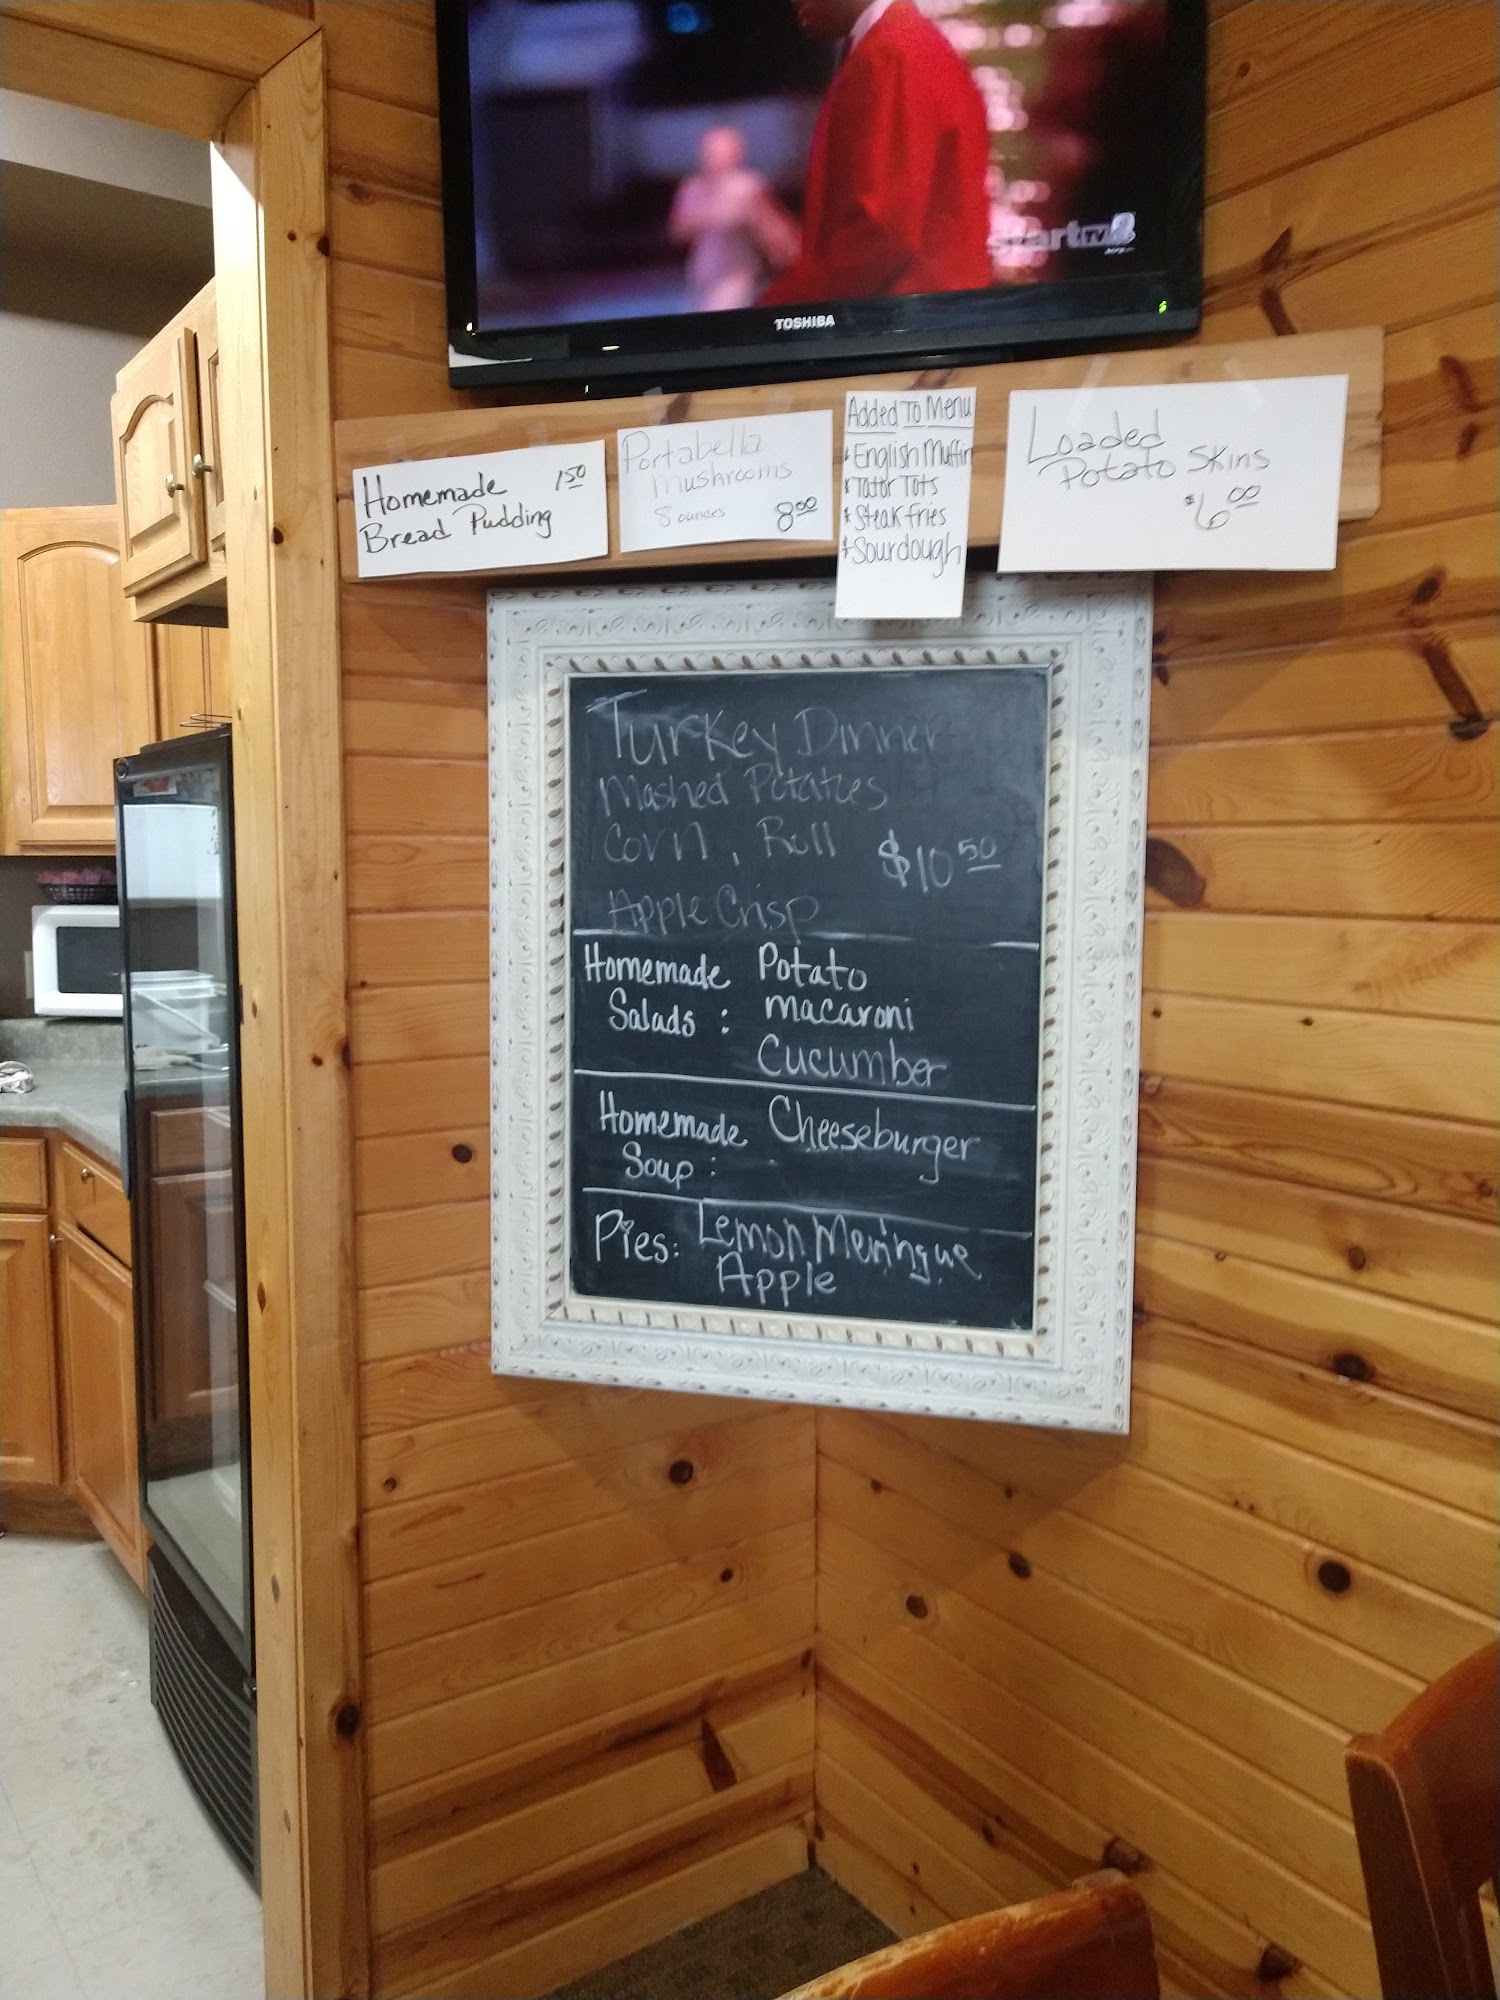 StartTV 8
TOSHIBA
Homemade 1.50
Bread Pudding
Portabella
Mushrooms
8 ounces 8.00
Added To Menu
* English Muffin
* Tator Tots
* Steak fries
* Sourdough
Loaded
Potato Skins
$6.00
Turkey Dinner
Mashed Potatoes
Corn, Roll $10.50
Apple Crisp
Homemade Potato
Salads: Macaroni
Cucumber
Homemade Cheeseburger
Soup:
Pies: Lemon Meringue
Apple